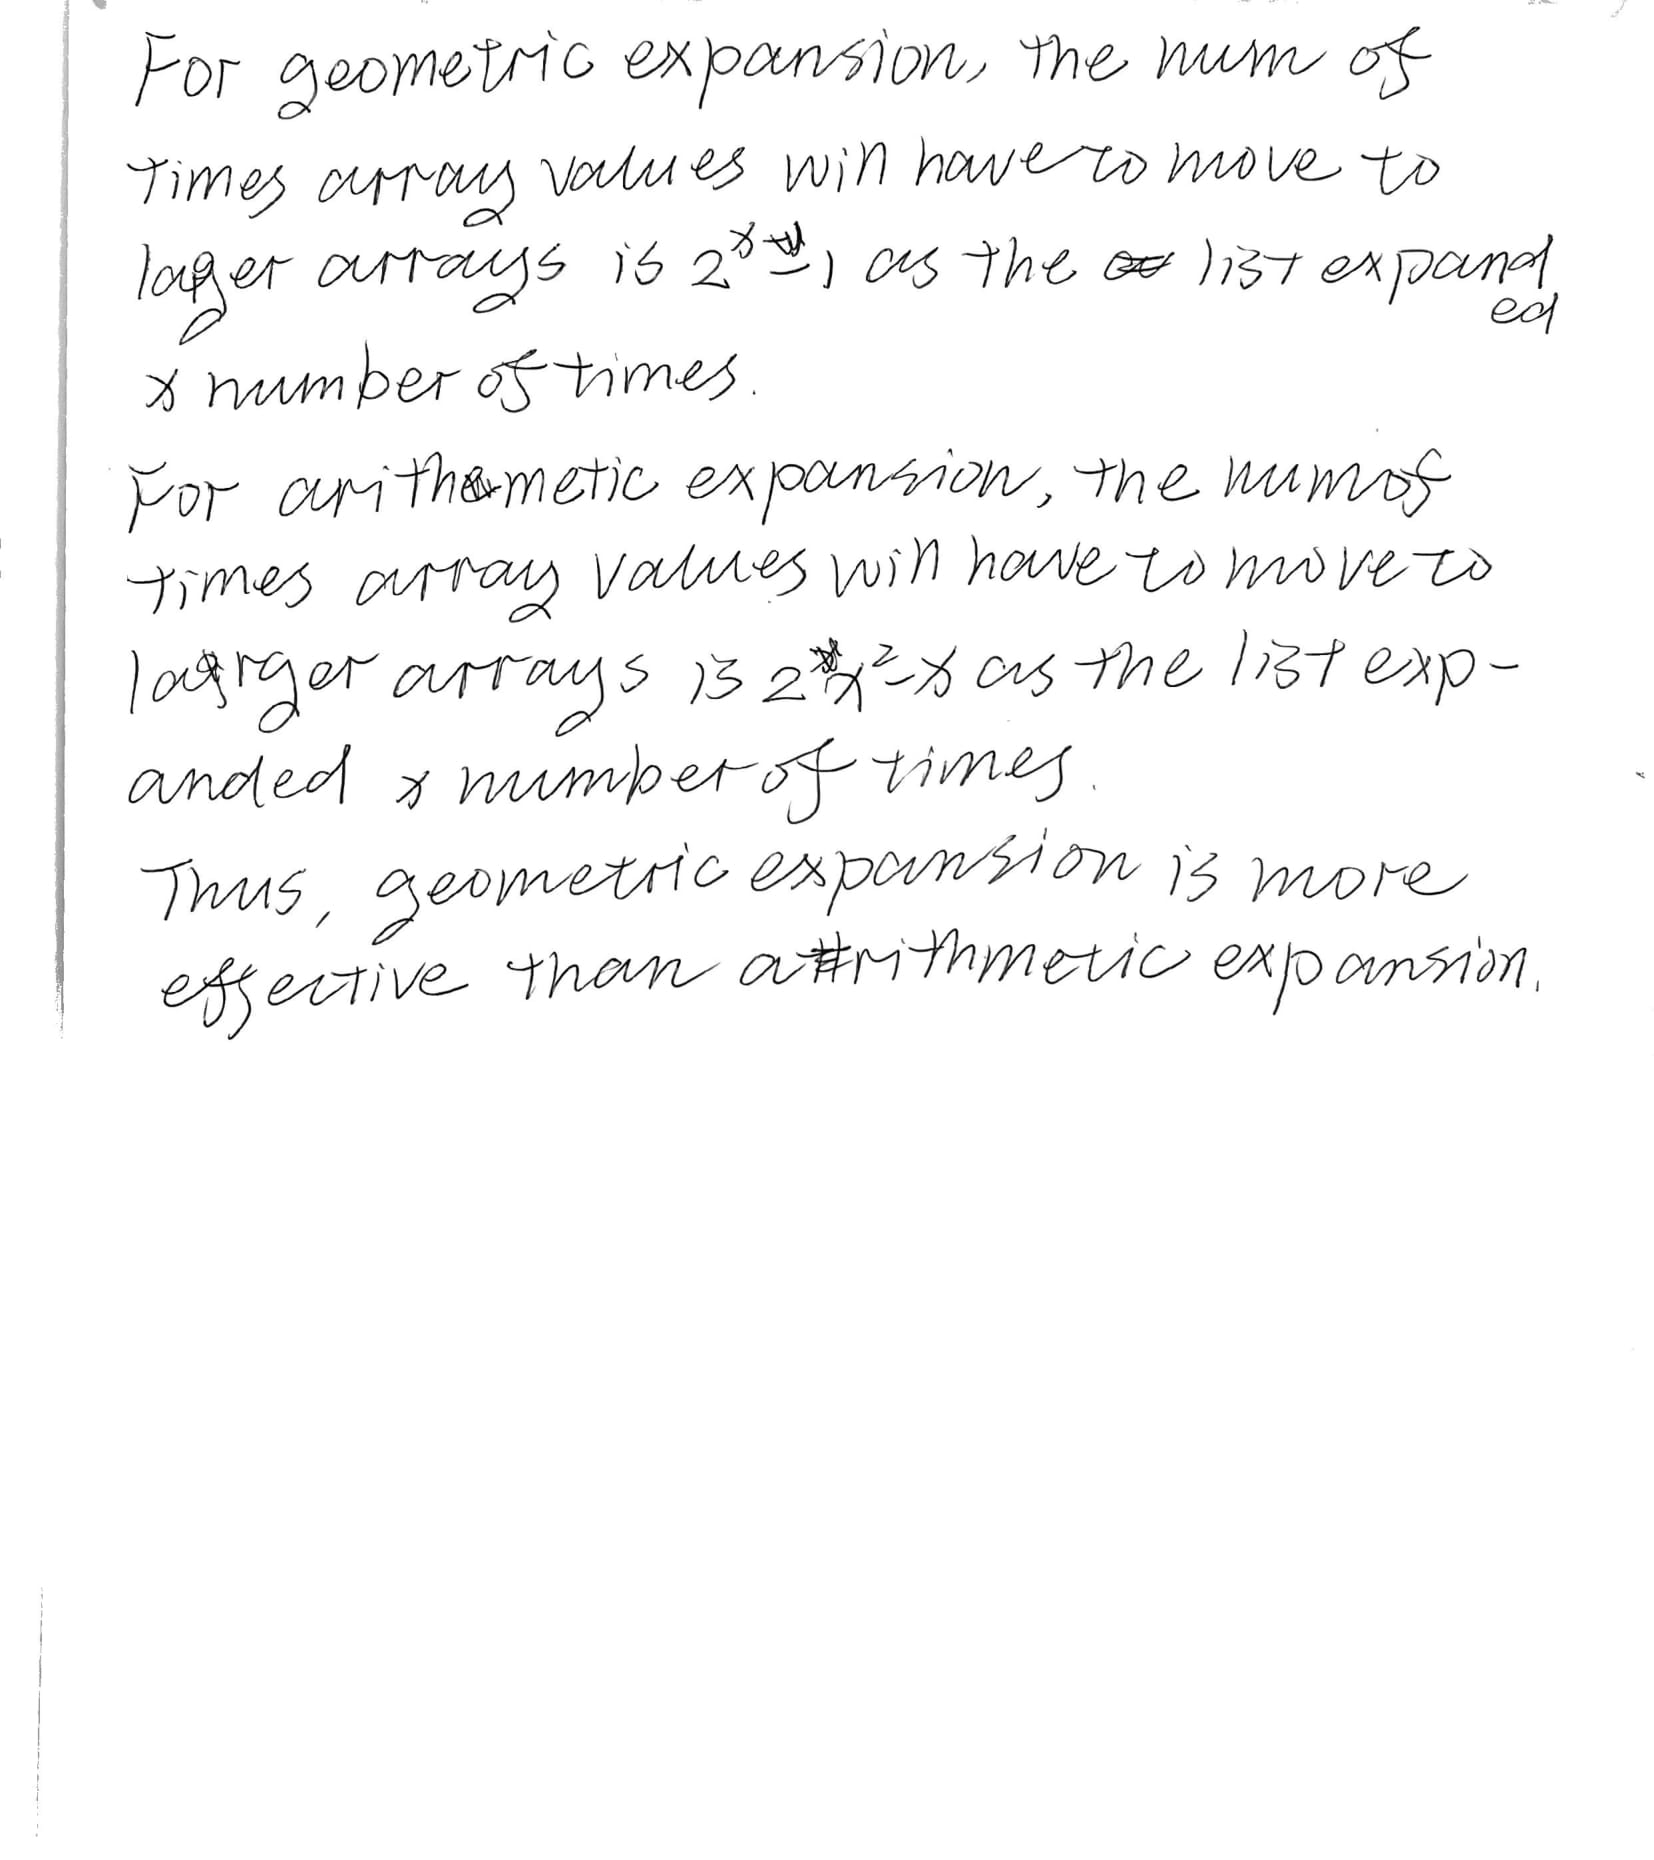 For geometric expansion, the num of
times array values will have to move to
lager arrays is 2^x - 1 as the list expand
ed
x number of times.
For arithmetic expansion, the num of
times array values will have to move to
larger arrays is 2x² - x as the list exp-
anded x number of times.
Thus, geometric expansion is more
effective than arithmetic expansion.